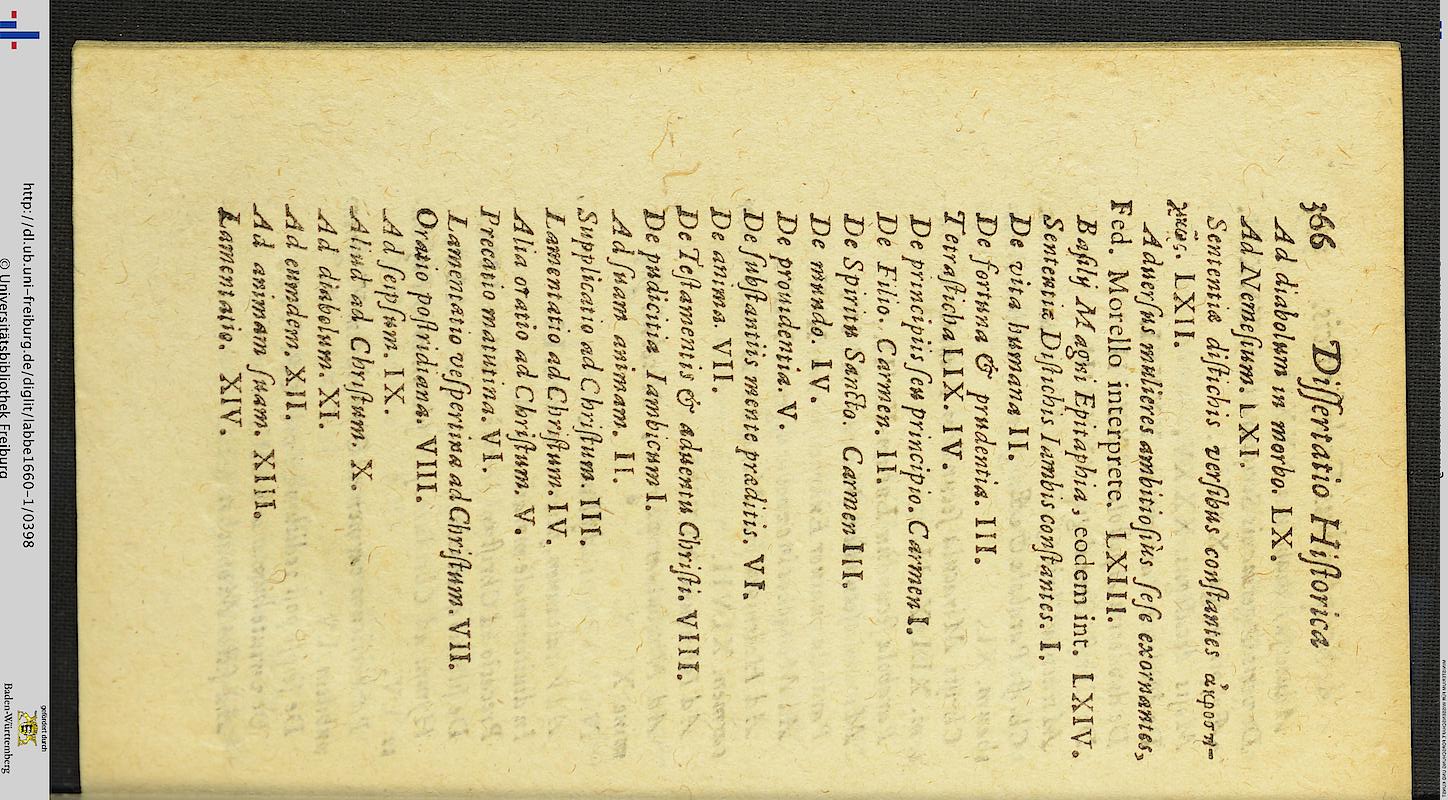 366 Dissertatio Historica
Ad diabolum in morbo. LX.
Ad Nemesium. LXI.
Sententiæ distichis versibus constantes ἀκροστι-
χίδος. LXII.
Aduersus mulieres ambitiosiùs sese exornantes,
Fed. Morello interprete. LXIII.
Basilij Magni Epitaphia, eodem int. LXIV.
Sententiæ Distichis Iambis constantes. I.
De vita humana II.
De fortuna & prudentia. III.
Tetrasticha LIX. IV.
De principiis seu principio. Carmen I.
De Filio. Carmen. II.
De Spiritu Sancto. Carmen III.
De mundo. IV.
De prouidentia. V.
De substantiis mente præditis. VI.
De anima. VII.
De Testamentis & aduentu Christi. VIII.
De pudicitia. Iambicum I.
Ad suam animam. II.
Supplicatio ad Christum. III.
Lamentatio ad Christum. IV.
Alia oratio ad Christum. V.
Precatio matutina. VI.
Lamentatio vespertina ad Christum. VII.
Oratio postridiana. VIII.
Ad seipsum. IX.
Aliud ad Christum. X.
Ad diabolum. XI.
Ad eumdem. XII.
Ad animam suam. XIII.
Lamentatio. XIV.
http://dl.ub.uni-freiburg.de/diglit/labbe1660-1/0398
© Universitätsbibliothek Freiburg
gefördert durch
Baden-Württemberg